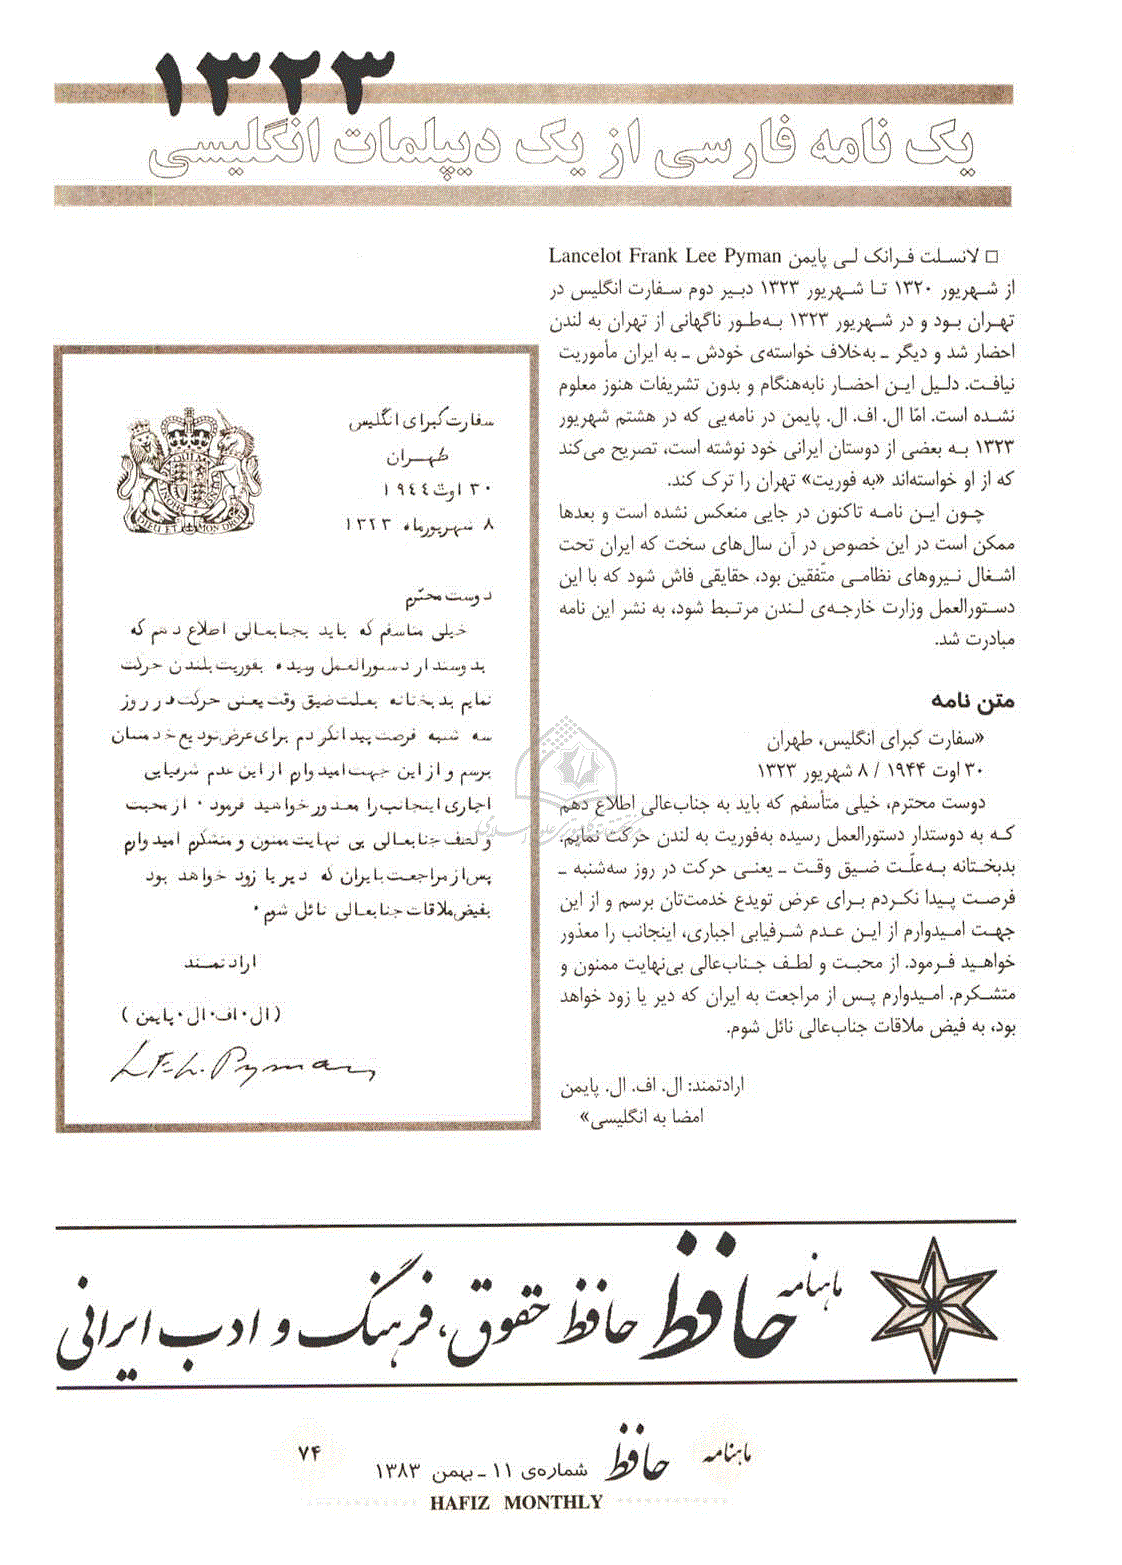 ۱۳۲۳
یک نامه فارسی از یک دیپلمات انگلیسی
□ لانسلت فرانک لی پایمن Lancelot Frank Lee Pyman
از شهریور ۱۳۲۰ تا شهریور ۱۳۲۳ دبیر دوم سفارت انگلیس در
تهران بود و در شهریور ۱۳۲۳ به‌طور ناگهانی از تهران به لندن
احضار شد و دیگر ـ به‌خلاف خواسته‌ی خودش ـ به ایران مأموریت
نیافت. دلیل این احضار نابه‌هنگام و بدون تشریفات هنوز معلوم
نشده است. امّا ال. اف. ال. پایمن در نامه‌یی که در هشتم شهریور
۱۳۲۳ به بعضی از دوستان ایرانی خود نوشته است، تصریح می‌کند
که از او خواسته‌اند «به فوریت» تهران را ترک کند.
چون این نامه تاکنون در جایی منعکس نشده است و بعدها
ممکن است در این خصوص در آن سال‌های سخت که ایران تحت
اشغال نیروهای نظامی متّفقین بود، حقایقی فاش شود که با این
دستورالعمل وزارت خارجه‌ی لندن مرتبط شود، به نشر این نامه
مبادرت شد.
متن نامه
«سفارت کبرای انگلیس، طهران
۳۰ اوت ۱۹۴۴ / ۸ شهریور ۱۳۲۳
دوست محترم، خیلی متأسفم که باید به جناب‌عالی اطلاع دهم
که به دوستدار دستورالعمل رسیده به‌فوریت به لندن حرکت نمایم.
بدبختانه به‌علّت ضیق وقت ـ یعنی حرکت در روز سه‌شنبه ـ
فرصت پیدا نکردم برای عرض تویدع خدمت‌تان برسم و از این
جهت امیدوارم از این عدم شرفیابی اجباری، اینجانب را معذور
خواهید فرمود. از محبت و لطف جناب‌عالی بی‌نهایت ممنون و
متشکرم. امیدوارم پس از مراجعت به ایران که دیر یا زود خواهد
بود، به فیض ملاقات جناب‌عالی نائل شوم.
ارادتمند: ال. اف. ال. پایمن
امضا به انگلیسی»
سفارت کبرای انگلیس
طهران
۳۰ اوت ۱۹۴۴
۸ شهریورماه ۱۳۲۳
DIEU ET MON DROIT
دوست محترم
خیلی متاسفم که باید بجنابعالی اطلاع دهم که
بدوستدار دستورالعمل رسیده بفوریت بلندن حرکت
نمایم بدبختانه بعلت ضیق وقت یعنی حرکت در روز
سه شنبه فرصت پیدا نکردم برای عرض تودیع خدمتان
برسم و از این جهت امیدوارم از این عدم شرفیابی
اجباری اینجانب را معذور خواهید فرمود · از محبت
و لطف جنابعالی بی نهایت ممنون و متشکرم امیدوارم
پس از مراجعت بایران که دیر یا زود خواهد بود
بفیض ملاقات جنابعالی نائل شوم ·
ارادتمند
(ال · اف · ال · پایمن)
L.F.L. Pyman
ماهنامه حافظ حافظ حقوق، فرهنگ و ادب ایرانی
ماهنامه حافظ شماره‌ی ۱۱ ـ بهمن ۱۳۸۳ ۷۴
HAFIZ MONTHLY